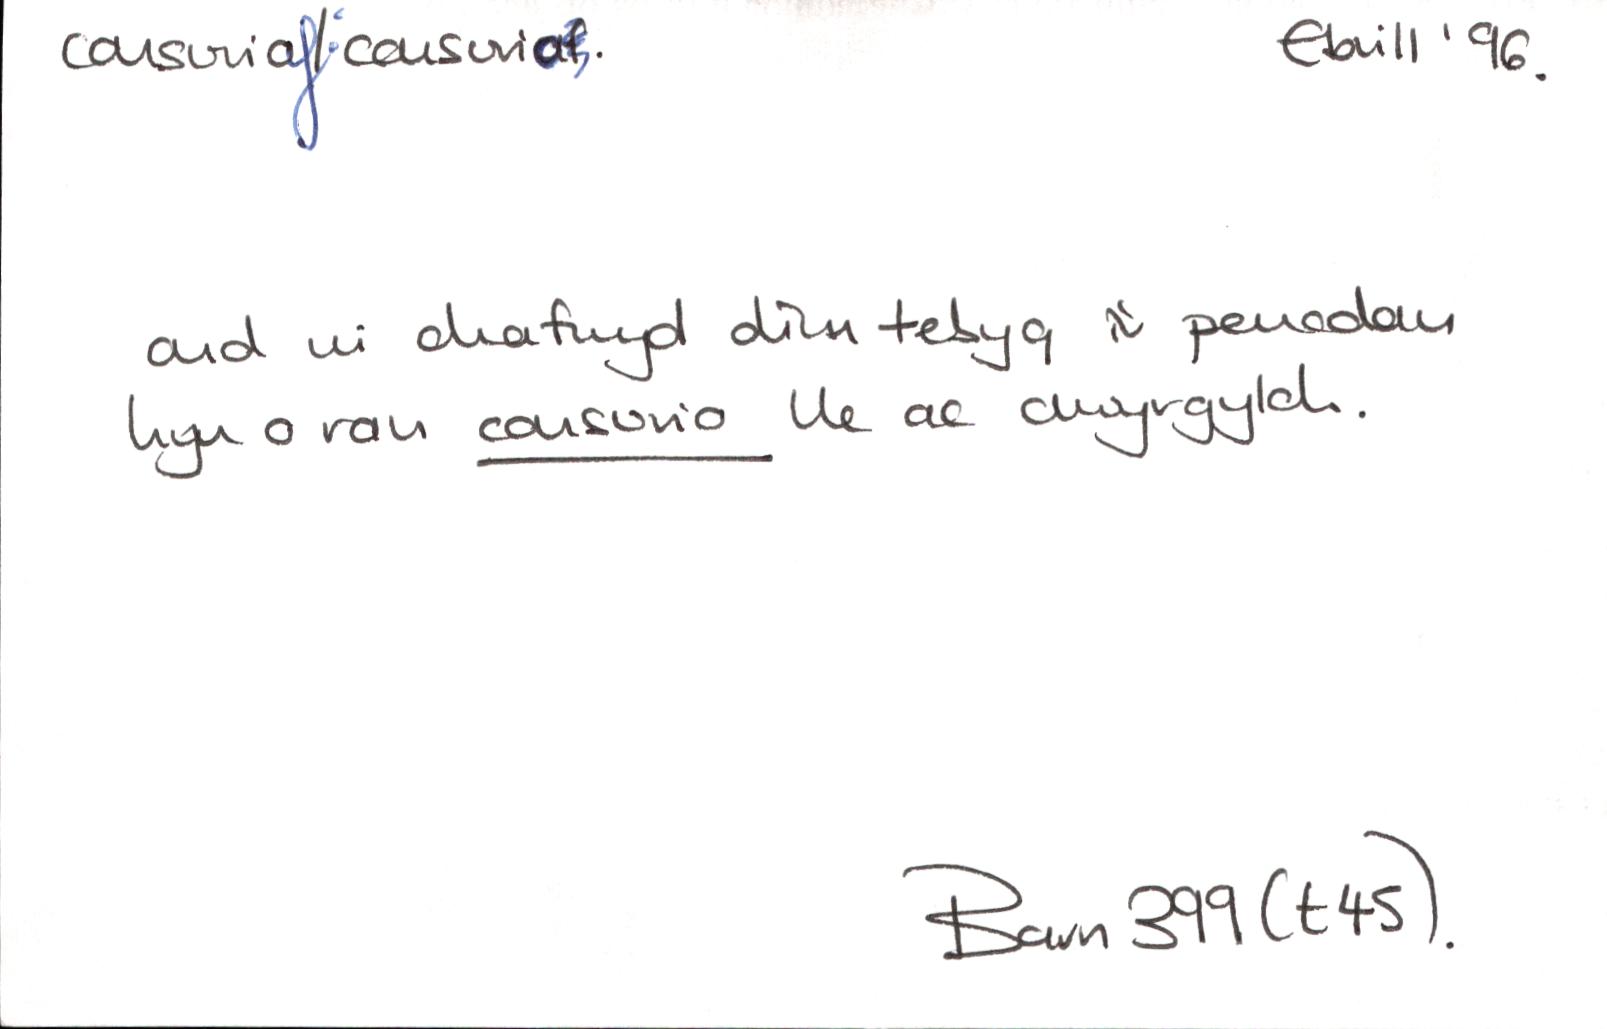 consuriaf: consurio. Ebrill '96.
ond ni chafwyd dim tebyg i'r penodau
hyn o ran consurio lle ac awyrgylch.
Barn 399 (t45).